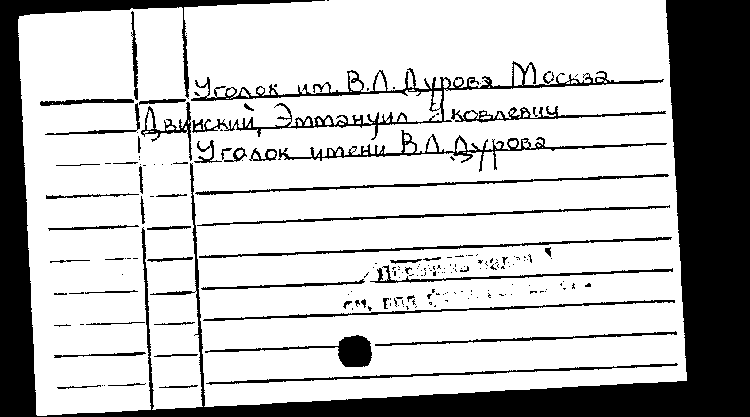 Уголок им. В.Л. Дурова Москва
Двинский, Эммануил Яковлевич
Уголок имени В.Л. Дурова.
см. под